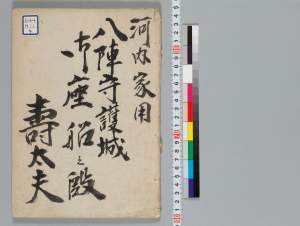 河内家用
八陣守護城
御座船之殿
壽太夫